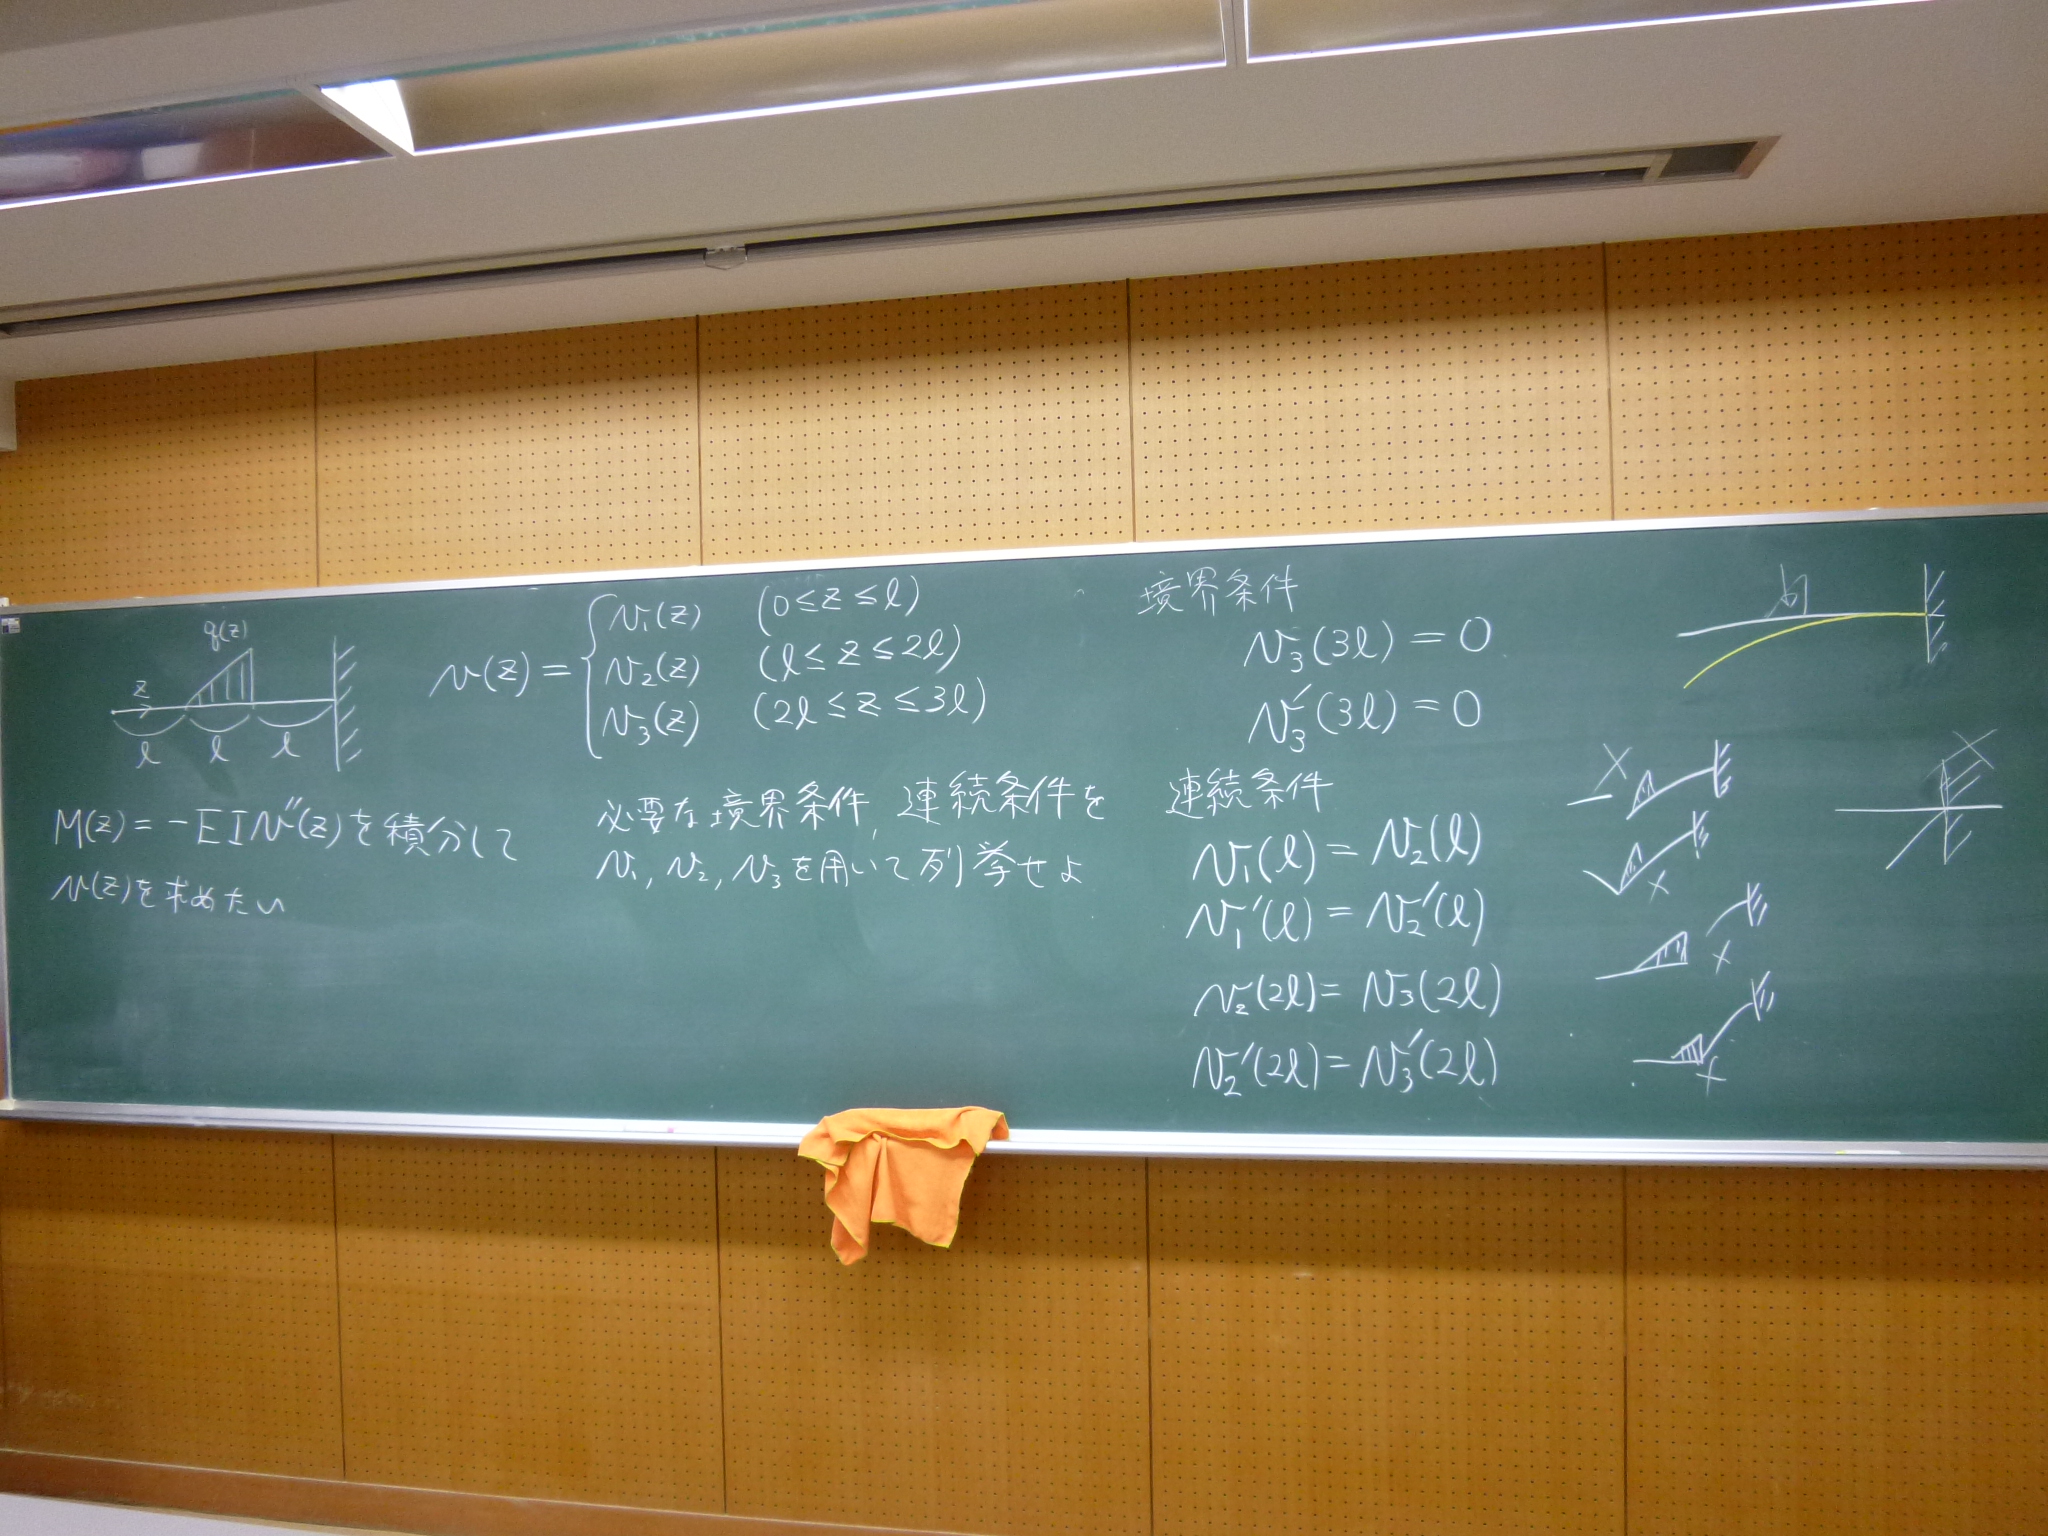 q(z)
z
l l l
v(z) = { v₁(z) (0 ≤ z ≤ l)
v₂(z) (l ≤ z ≤ 2l)
v₃(z) (2l ≤ z ≤ 3l)
M(z) = -EIv″(z)を積分して
v(z)を求めたい
必要な境界条件, 連続条件を
v₁, v₂, v₃を用いて列挙せよ
境界条件
v₃(3l) = 0
v₃′(3l) = 0
連続条件
v₁(l) = v₂(l)
v₁′(l) = v₂′(l)
v₂(2l) = v₃(2l)
v₂′(2l) = v₃′(2l)